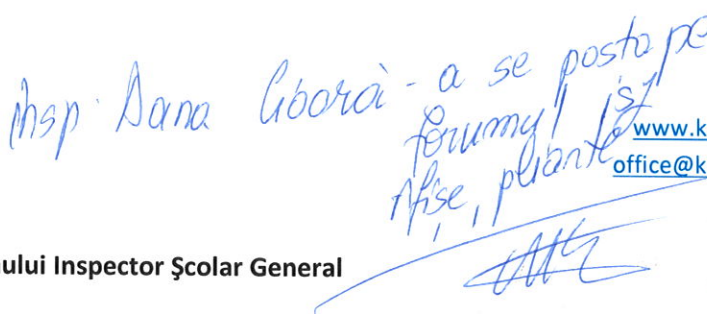 Insp. Dana - a se posta pe
forumul isj
www.k
Afișe, pliante
office@k
ului Inspector Școlar General